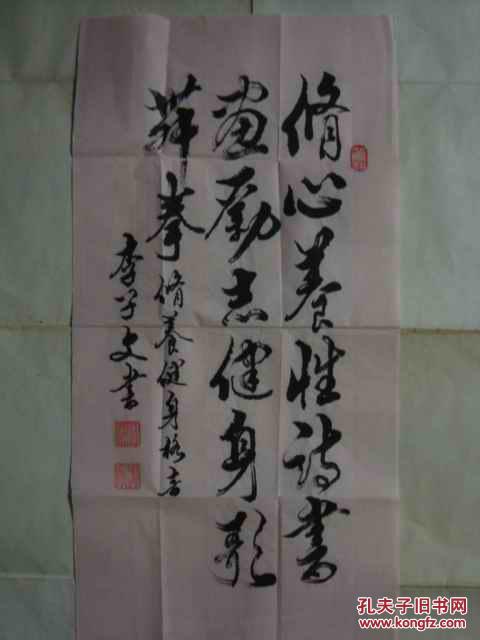 脩心養性诗書
画勵志健身歌
舞拳
脩養健身格言
李学文書
孔夫子旧书网
www.kongfz.com